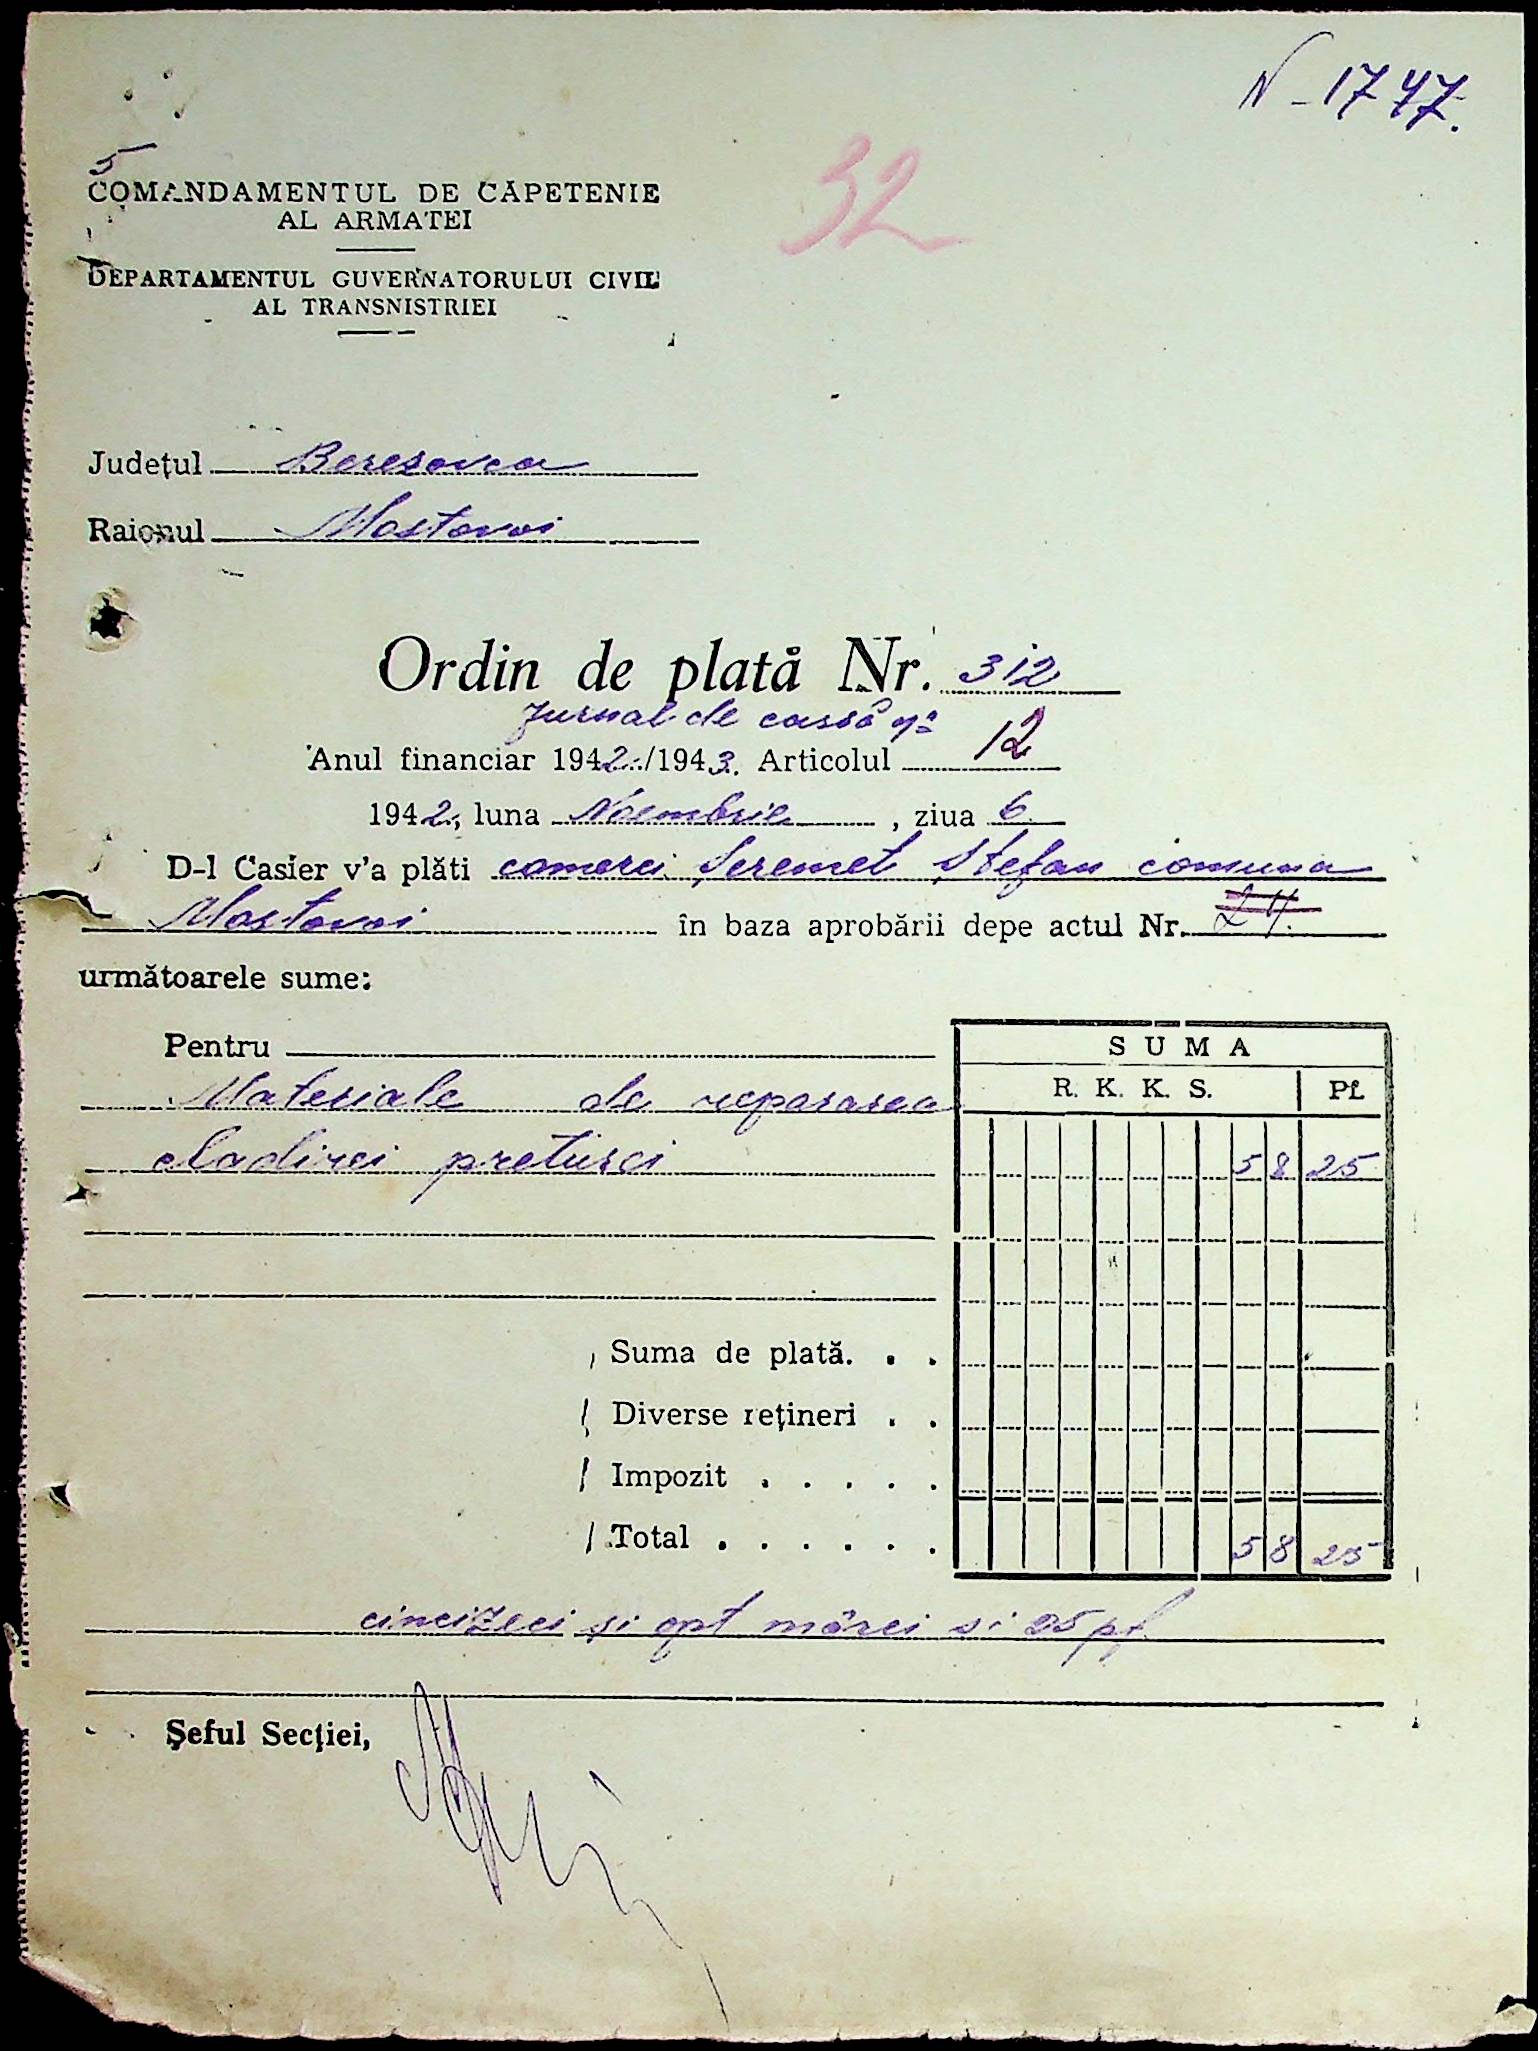 N - 1747.
32
5
COMANDAMENTUL DE CĂPETENIE
AL ARMATEI
DEPARTAMENTUL GUVERNATORULUI CIVIL
AL TRANSNISTRIEI
Județul Beresovca
Raionul Mostovoi
Ordin de plată Nr. 312
Jurnal de cassă nº
Anul financiar 1942./1943. Articolul 12
1942, luna Noembrie, ziua 6
D-l Casier v'a plăti comerci Seremet Ștefan comuna
Mostovoi în baza aprobării depe actul Nr. 24.
următoarele sume:
Pentru
SUMA
R. K. K. S. Pf.
Materiale de repararea
cladirei preturei 58 25
Suma de plată. . .
Diverse rețineri . .
Impozit . . . . .
Total . . . . . . 58 25
cincizeci și opt mărci si 25 pf.
Șeful Secției,